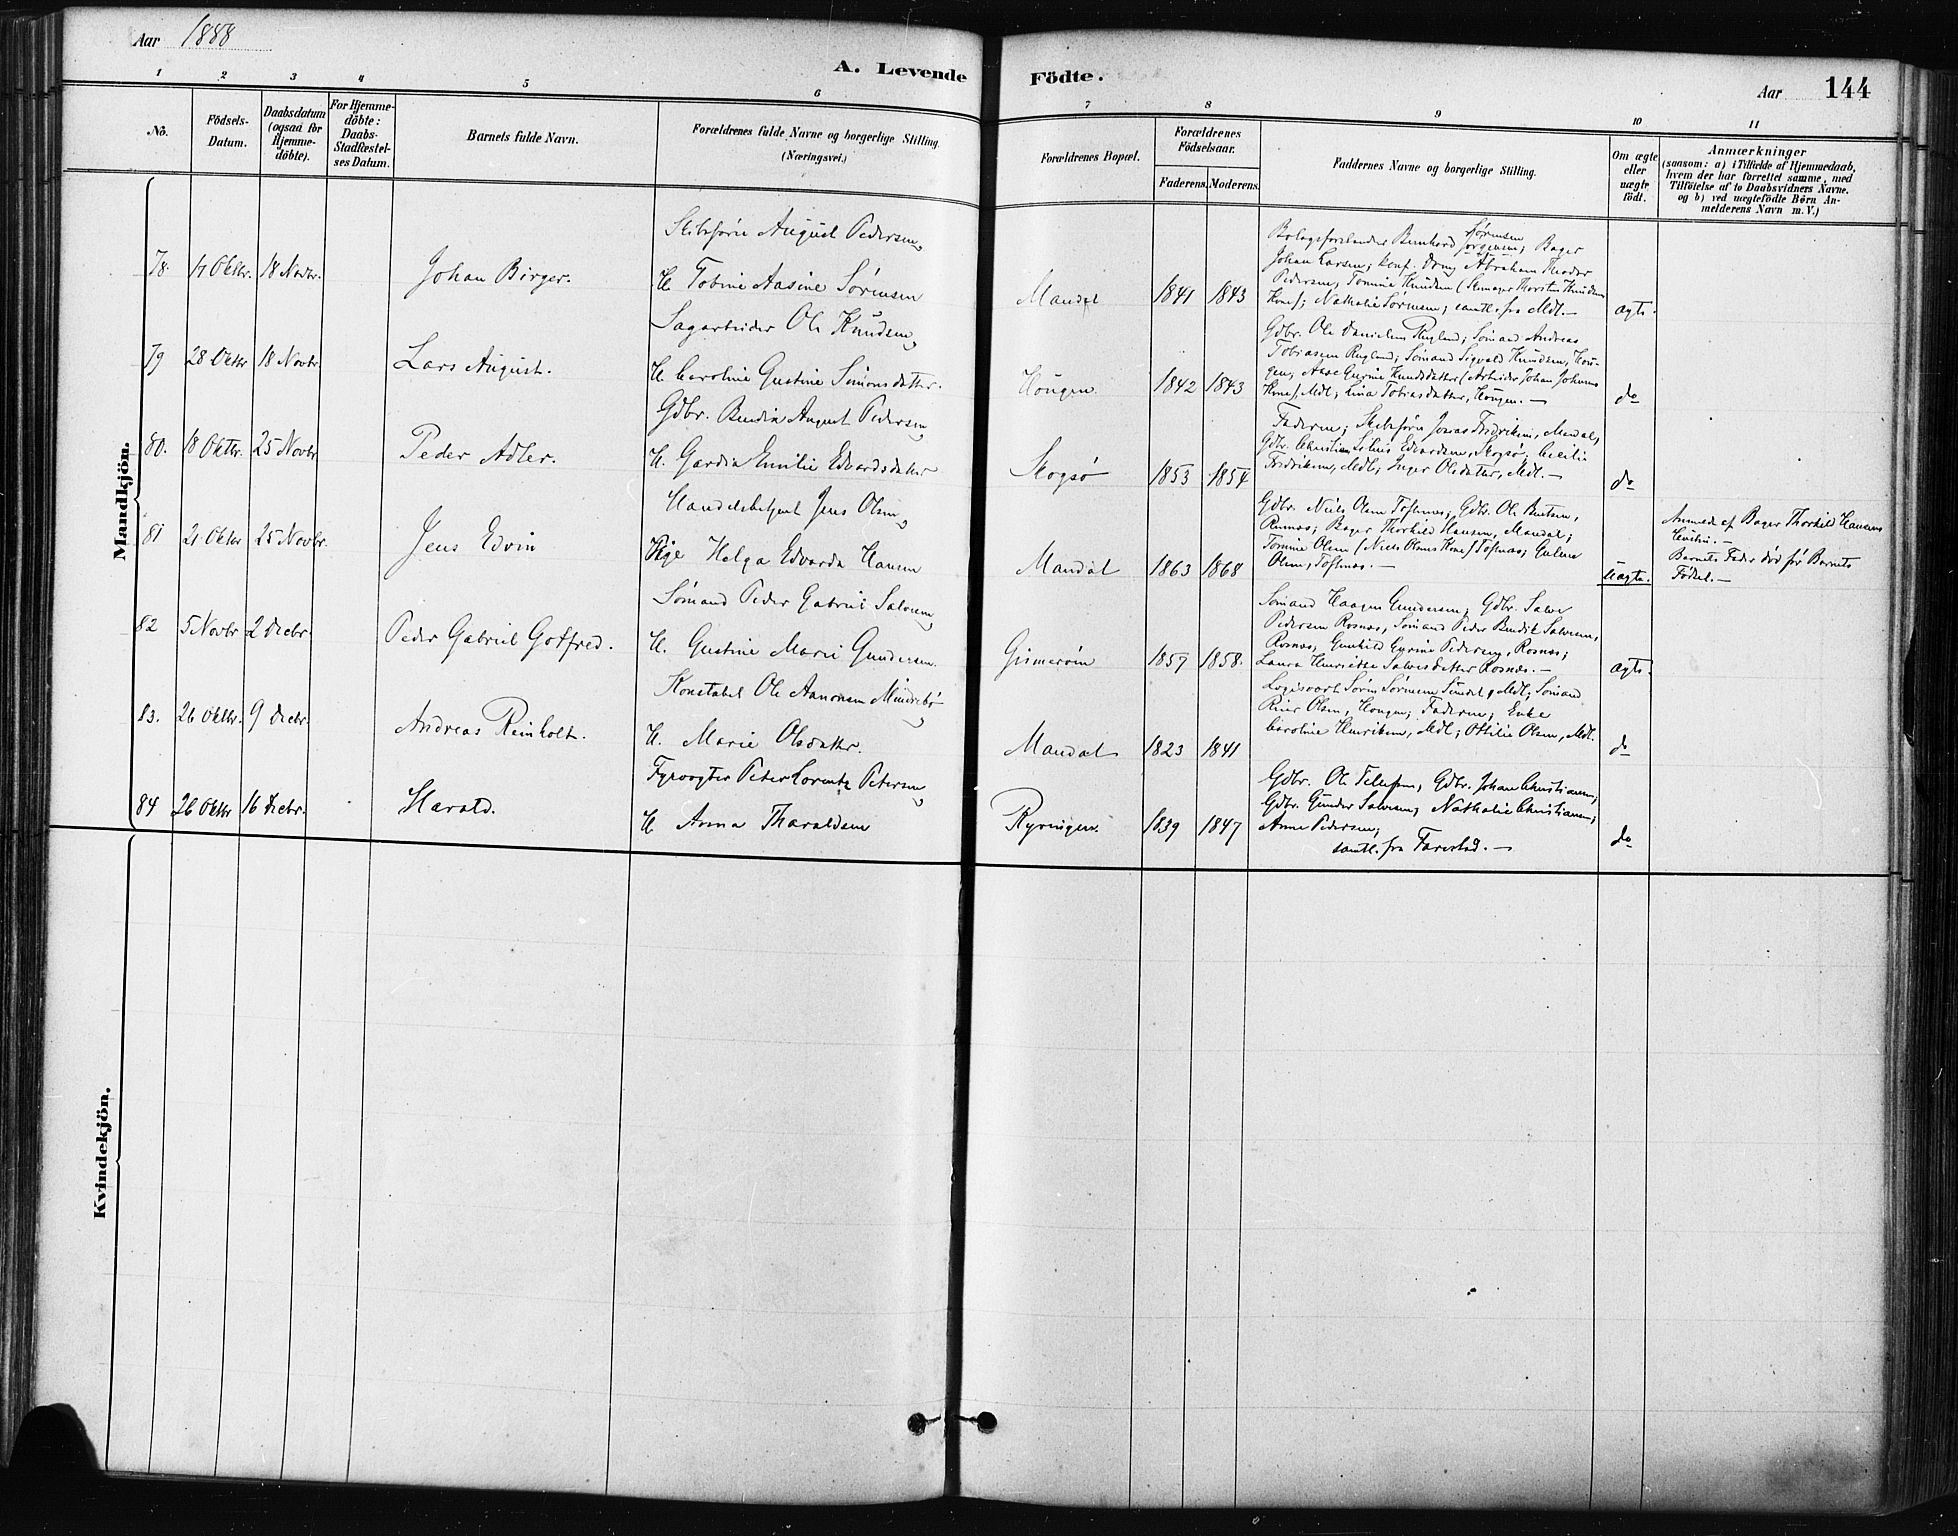 Aar 1888
A. Levende Födte.
Aar 144
1 2 3 4 5 6 7 8 9 10 11
No.
Födsels-
Datum.
Daabsdatum
(ogsaa for
Hjemme-
döbte).
For Hjemme-
döbte:
Daabs-
Stadfæstel-
ses Datum.
Barnets fulde Navn.
Forældrenes fulde Navne og borgerlige Stilling.
(Næringsvei.)
Forældrenes Bopæl.
Forældrenes
Födselsaar.
Faderens. Moderens.
Faddernes Navne og borgerlige Stilling.
Om ægte
eller
uægte
födt.
Anmærkninger
(saasom: a) i Tilfælde af Hjemmedaab,
hvem der har forrettet samme, med
Tilföielse af to Daabsvidners Navne.
og b) ved uægtefödte Börn An-
melderens Navn m. V.)
Mandkjön.
78. 17 Oktbr. 18 Novbr. Johan Birger.
Skibsfører August Pedersen,
H. Tobine Aasine Sørensen
Mandal 1841 1843
Sørensen
Bolagsforstander Bernhard Jørgensen; Bager
Johan Larsen; konf. Dreng Abraham Theodor
Pedersen, Tomine Knudsen (Skomager Thorsten Knudsens
Kone); Nathalie Sørensen; samtl. fra Mdl. –
ægte.
79 28 Oktbr 18 Novbr. Lars August.
Sagarbeider Ole Knudsen,
H. Caroline Gustine Simonsdatter.
Hougen. 1842 1843
Gdbr. Ole Danielsen Ruglund; Sømand Andreas
Tobiassen Ruglund; Sømand Sigvald Knudsen, Hou-
gen, Aase Gurine Knudsdatter (Arbeider Johan Johnsens
Kone), Mdl; Lina Tobiasdatter, Hougen. –
do
80. 18 Oktbr. 25 Novbr Peder Adler.
Gdbr. Bendix August Pedersen,
H. Gardia Emilie Edvardsdatter
Skogsø 1853 1854
Faderen; Skibsfører Jonas Fredriksen, Mandal,
Gdbr. Christian Edvardsen, Skogsø; Cecilie
Fredriksen, Mdl; Inger Olsdatter, Mdl. –
do
81 21 Oktbr 25 Novbr. Jens Edvin
Handelsbetjent Jens Olsen,
Pige Helga Edvarda Hansen
Mandal 1863 1868
Gdbr. Niels Olsen Toftenes; Gdbr. Ole Bentsen,
Rosnes; Bager Thorkild Hansen, Mandal;
Tomine Olsen (Niels Olsens Kone) Toftenes; Gulene
Olsen, Toftenes. –
uægte.
Anmeldt af Bager Thorkild Hansens
Hustru. –
Barnets Fader død før Barnets
Fødsel. –
82 5 Novbr 2 Decbr. Peder Gabriel Gotfred.
Sømand Peder Gabriel Salvesen,
H. Gustine Marie Gundersen.
Gismerøen 1857 1858.
Sømand Haagen Gundersen; Gdbr. Salve
Pedersen Rosnes, Sømand Peder Bendik Salvesen,
Rosnes; Gunhild Gurine Pedersen, Rosnes;
Laura Henriette Salvesdatter Rosnes. –
ægte
83. 26 Oktbr. 9 Decbr. Andreas Reinholt.
Konstabel Ole Aanonsen Mindrebø
H. Marie Olsdatter.
Mandal 1823 1841
Logisvært Søren Sørensen, Mdl; Sømand
Reier Olsen, Hougen; Faderen; Enke
Caroline Henriksen, Mdl; Ottilie Olsen, Mdl.
do
84 26 Oktbr 16 Decbr. Harald.
Fyrvogter Peter Lorentz Petersen,
H Anna Tharaldsen
Ryvingen. 1839 1847
Gdbr. Ole Tellefsen, Gdbr. Johan Christiansen;
Gdbr. Gunder Salvesen, Nathalie Christiansen;
Anne Pedersen;
samtl. fra Farestad. –
do
Kvindekjön.